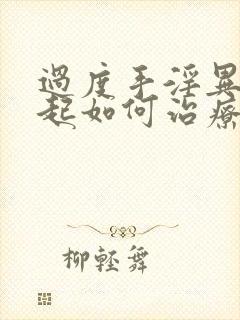 過度手淫異
起如何治療
柳輕舞